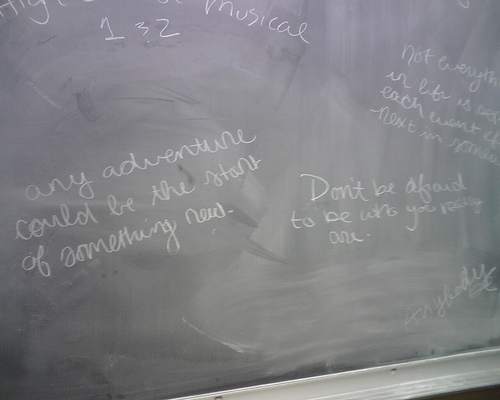 High Musical
1 & 2
any adventure
could be the start
of something new.
Don't be afraid
to be who you really
are.
Not everyth
in life is
each event
next in some
Anybody